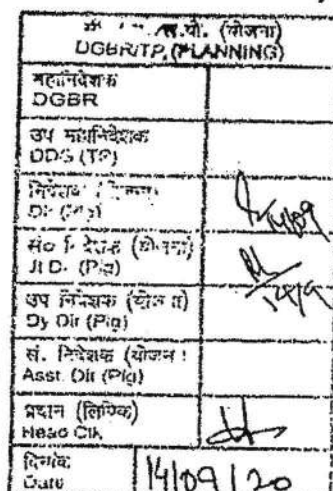 (योजना)
DGBR/TP, (PLANNING)
महानिदेशक
DGBR
उप महानिदेशक
DDG (TP)
निदेशक
Dir (Plg)
सं० निदेशक (योजना)
Jt Dir (Plg)
उप निदेशक (योजना)
Dy Dir (Plg)
सं. निदेशक (योजना)
Asst. Dir (Plg)
प्रधान (लिपिक)
Head Clk
दिनांक
Date 14/09/20